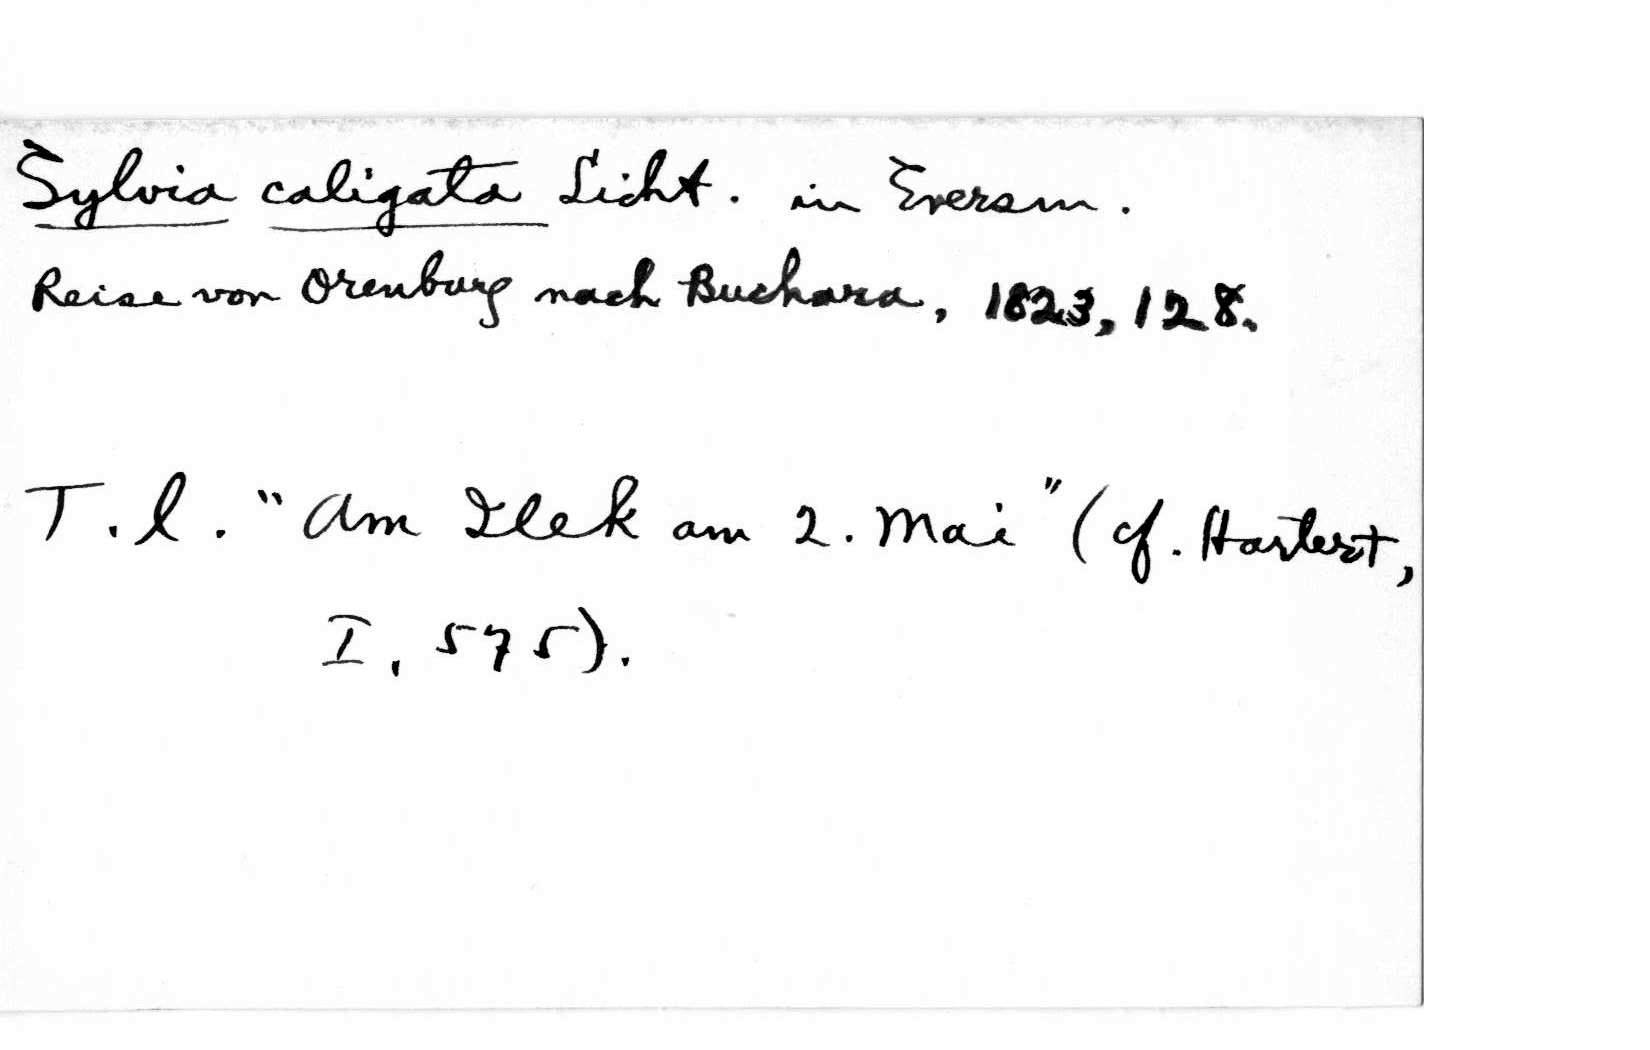 Sylvia caligata Licht. in Eversm.
Reise von Orenburg nach Buchara, 1823, 128.
T.l. "Am Ilek am 2. Mai" (cf. Hartert,
I, 575).